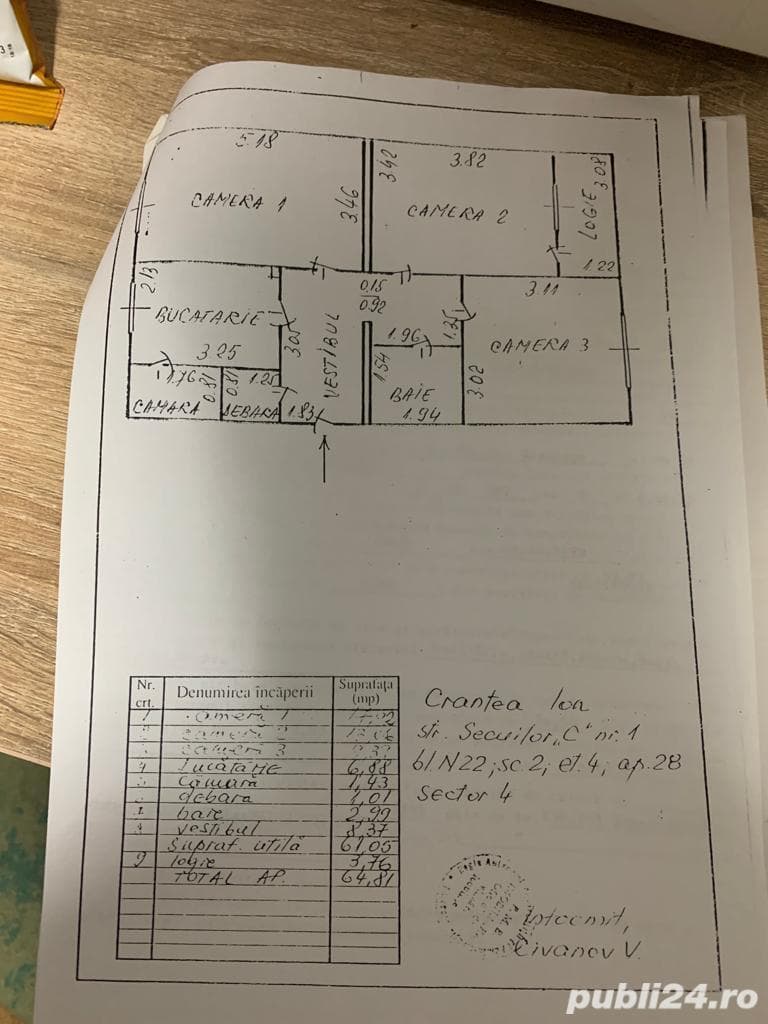 5.18
CAMERA 1
3.46
3.42
3.82
CAMERA 2
LOGIE
3.08
1.22
2.13
BUCATARIE
3.25
3.05
VESTIBUL
0.15
0.92
1.96
1.35
3.11
CAMERA 3
3.02
1.54
BAIE
1.94
1.76
0.81
0.81
1.25
CAMARA
DEBARA
1.83
Nr. crt. Denumirea încăperii Suprafața (mp)
1 cameră 1
2 cameră 2
cameră 3
4 6,88
cămară 1,43
debara 1,01
baie 2,99
vestibul 8,37
Supraf. utilă 61,05
9 logie 3,76
TOTAL AP. 64,81
Crantea Ion
str. Securilor „C" nr. 1
bl. N22; sc. 2; et. 4; ap. 28
sector 4
Intocmit,
Civanov V.
publi24.ro